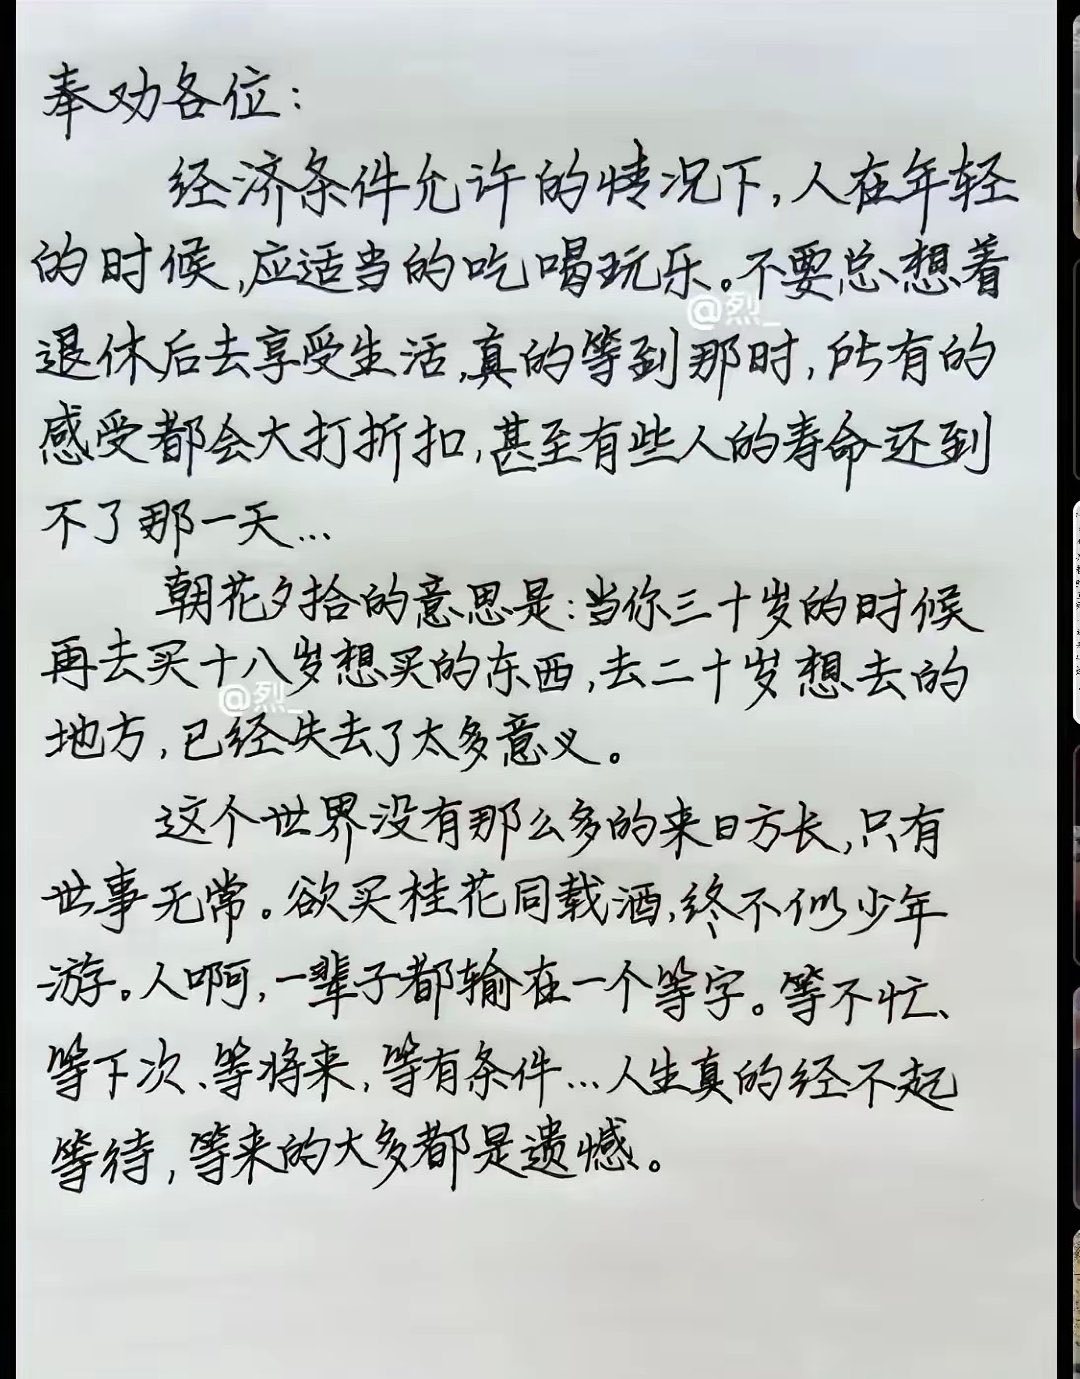 奉劝各位:
经济条件允许的情况下,人在年轻
的时候,应适当的吃喝玩乐。不要总想着
@烈_
退休后去享受生活,真的等到那时,所有的
感受都会大打折扣,甚至有些人的寿命还到
不了那一天...
朝花夕拾的意思是:当你三十岁的时候
再去买十八岁想买的东西,去二十岁想去的
@烈_
地方,已经失去了太多意义。
这个世界没有那么多的来日方长,只有
世事无常。欲买桂花同载酒,终不似少年
游。人啊,一辈子都输在一个等字。等不忙、
等下次、等将来,等有条件...人生真的经不起
等待,等来的大多都是遗憾。